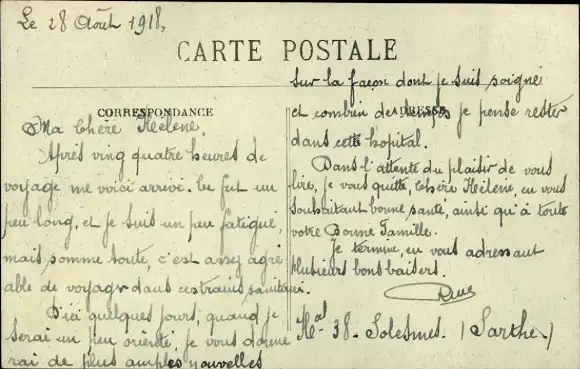 Le 28 Août 1918,
CARTE POSTALE
CORRESPONDANCE
Ma Chère Hélène,
Après ving quatre heures de
voyage me voici arrivé. Ce fut un
peu long, et je suis un peu fatigué,
mais somme toute, c'est assez agré
able de voyager dans ces trains sanitaires.
D'ici quelques jours, quand je
serai un peu orienté, je vous donne
rai de plus amples nouvelles
sur la façon dont je suis soigné
ADRESSE
et combien de temps je pense rester
dans cette hopital.
Dans l'attente du plaisir de vous
lire, je vous quitte, Chère Hélène, en vous
souhaitant bonne santé, ainsi qu'à toute
votre Bonne Famille.
Je termine, en vous adressant
plusieurs bons baisers.
Hal 38. Solesmes. (Sarthe.)